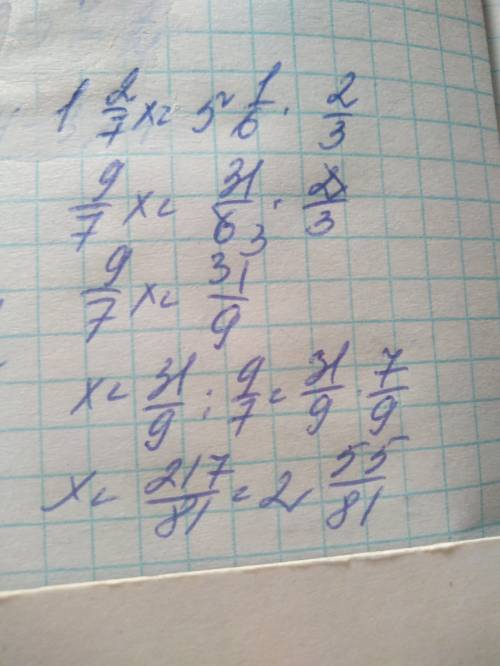 1 2/7 x = 5 1/6 · 2/3
9/7 x = 31/6 3 · 2/3
9/7 x = 31/9
x = 31/9 : 9/7 = 31/9 · 7/9
x = 217/81 = 2 55/81